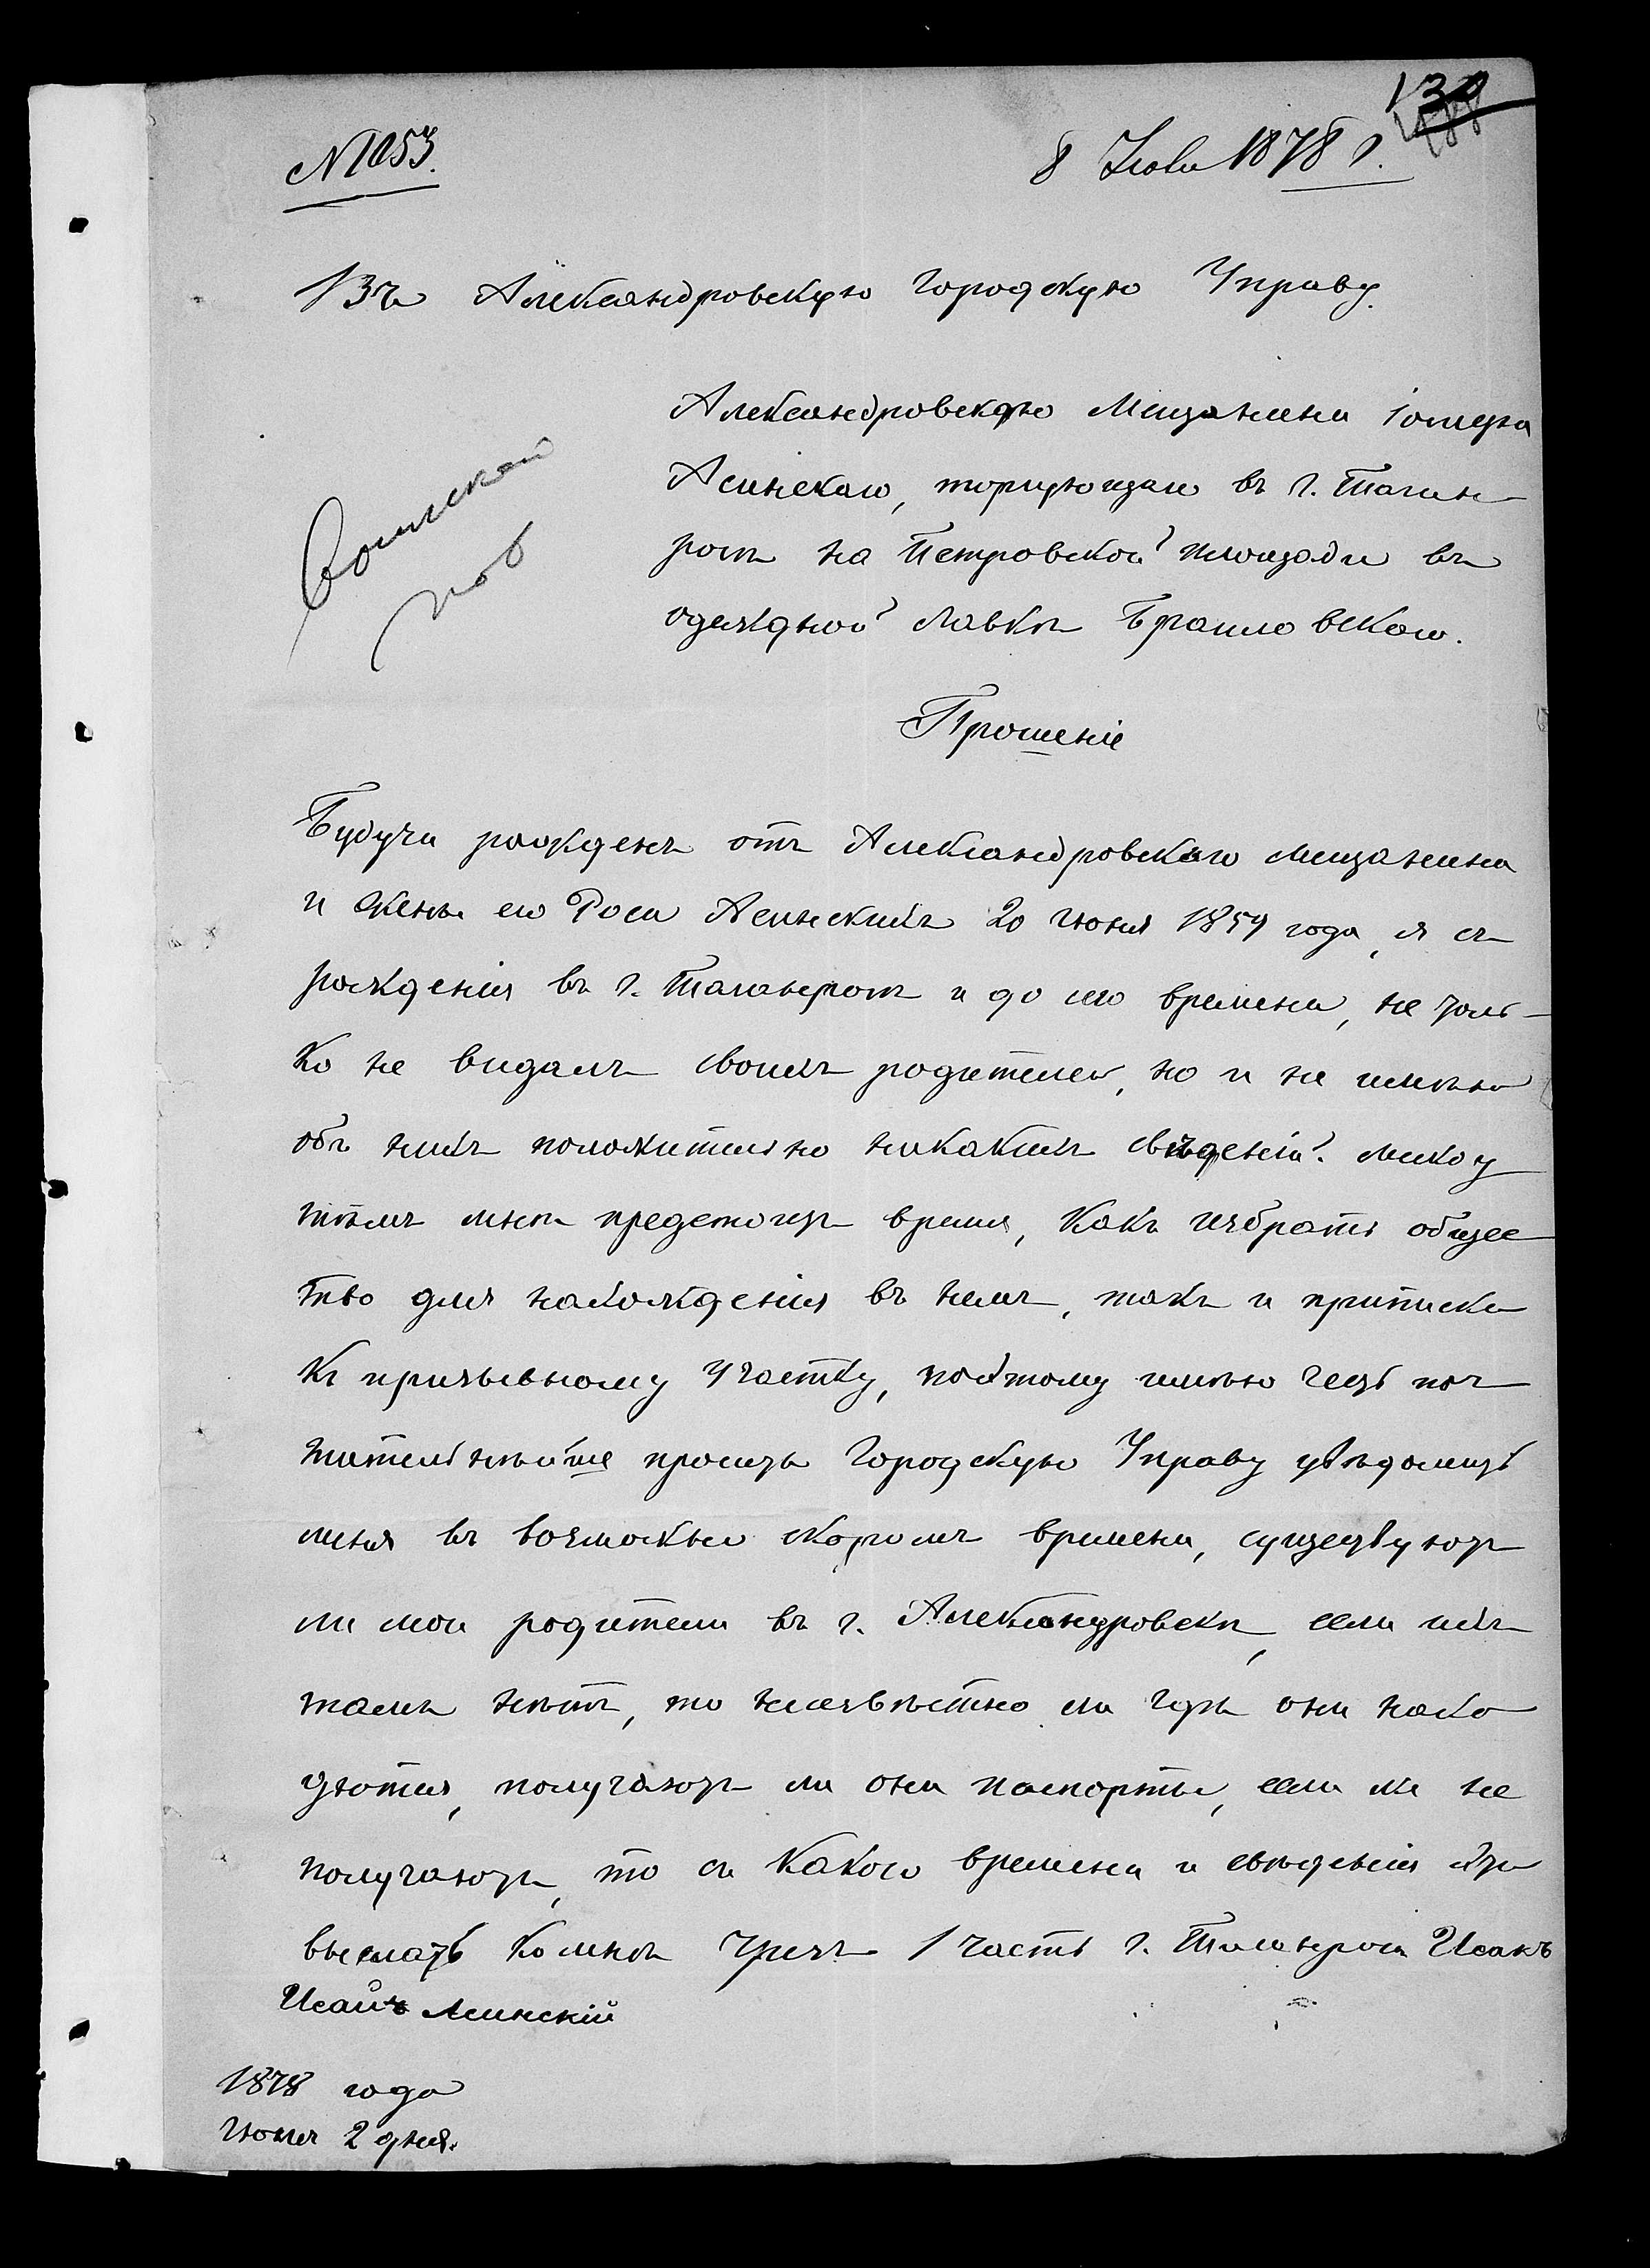 130
№ 1053.
8 Июня 1878 г.
Въ Александровскую Городскую Управу.
Воинской
пов
Александровскаго Мещанина
Асинскаго, торгующаго въ г. Таган-
рогѣ на Петровской площади въ
одеждной лавкѣ Браиловскаго.
Прошеніе
Будучи рожденъ отъ Александровскаго мещанина
и жены его Роси Асинскихъ 20 июня 1859 года, я съ
рожденія въ г. Таганрогѣ и до сего времени, не толь-
ко не видалъ своихъ родителей, но и не имѣю
объ нихъ положительно никакихъ свѣденій. между
тѣмъ мнѣ предстоитъ время, какъ избрать общес
тво для нахожденія въ немъ, такъ и приписки
къ призывному участку, поэтому имѣю честь поч
тительнѣйше просить Городскую Управу увѣдомить
меня въ возможно скоромъ времени, существуютъ
ли мои родители въ г. Александровскѣ, если ихъ
тамъ нѣтъ, то неизвѣстно ли гдѣ они нахо
дятся, получаютъ ли они паспорты, если же не
получаютъ, то съ какого времени и свѣденія эти
выслать ко мнѣ чрезъ 1 часть г. Таганрога Исакъ
Исаичъ Асинскій
1878 года
июня 2 дня.